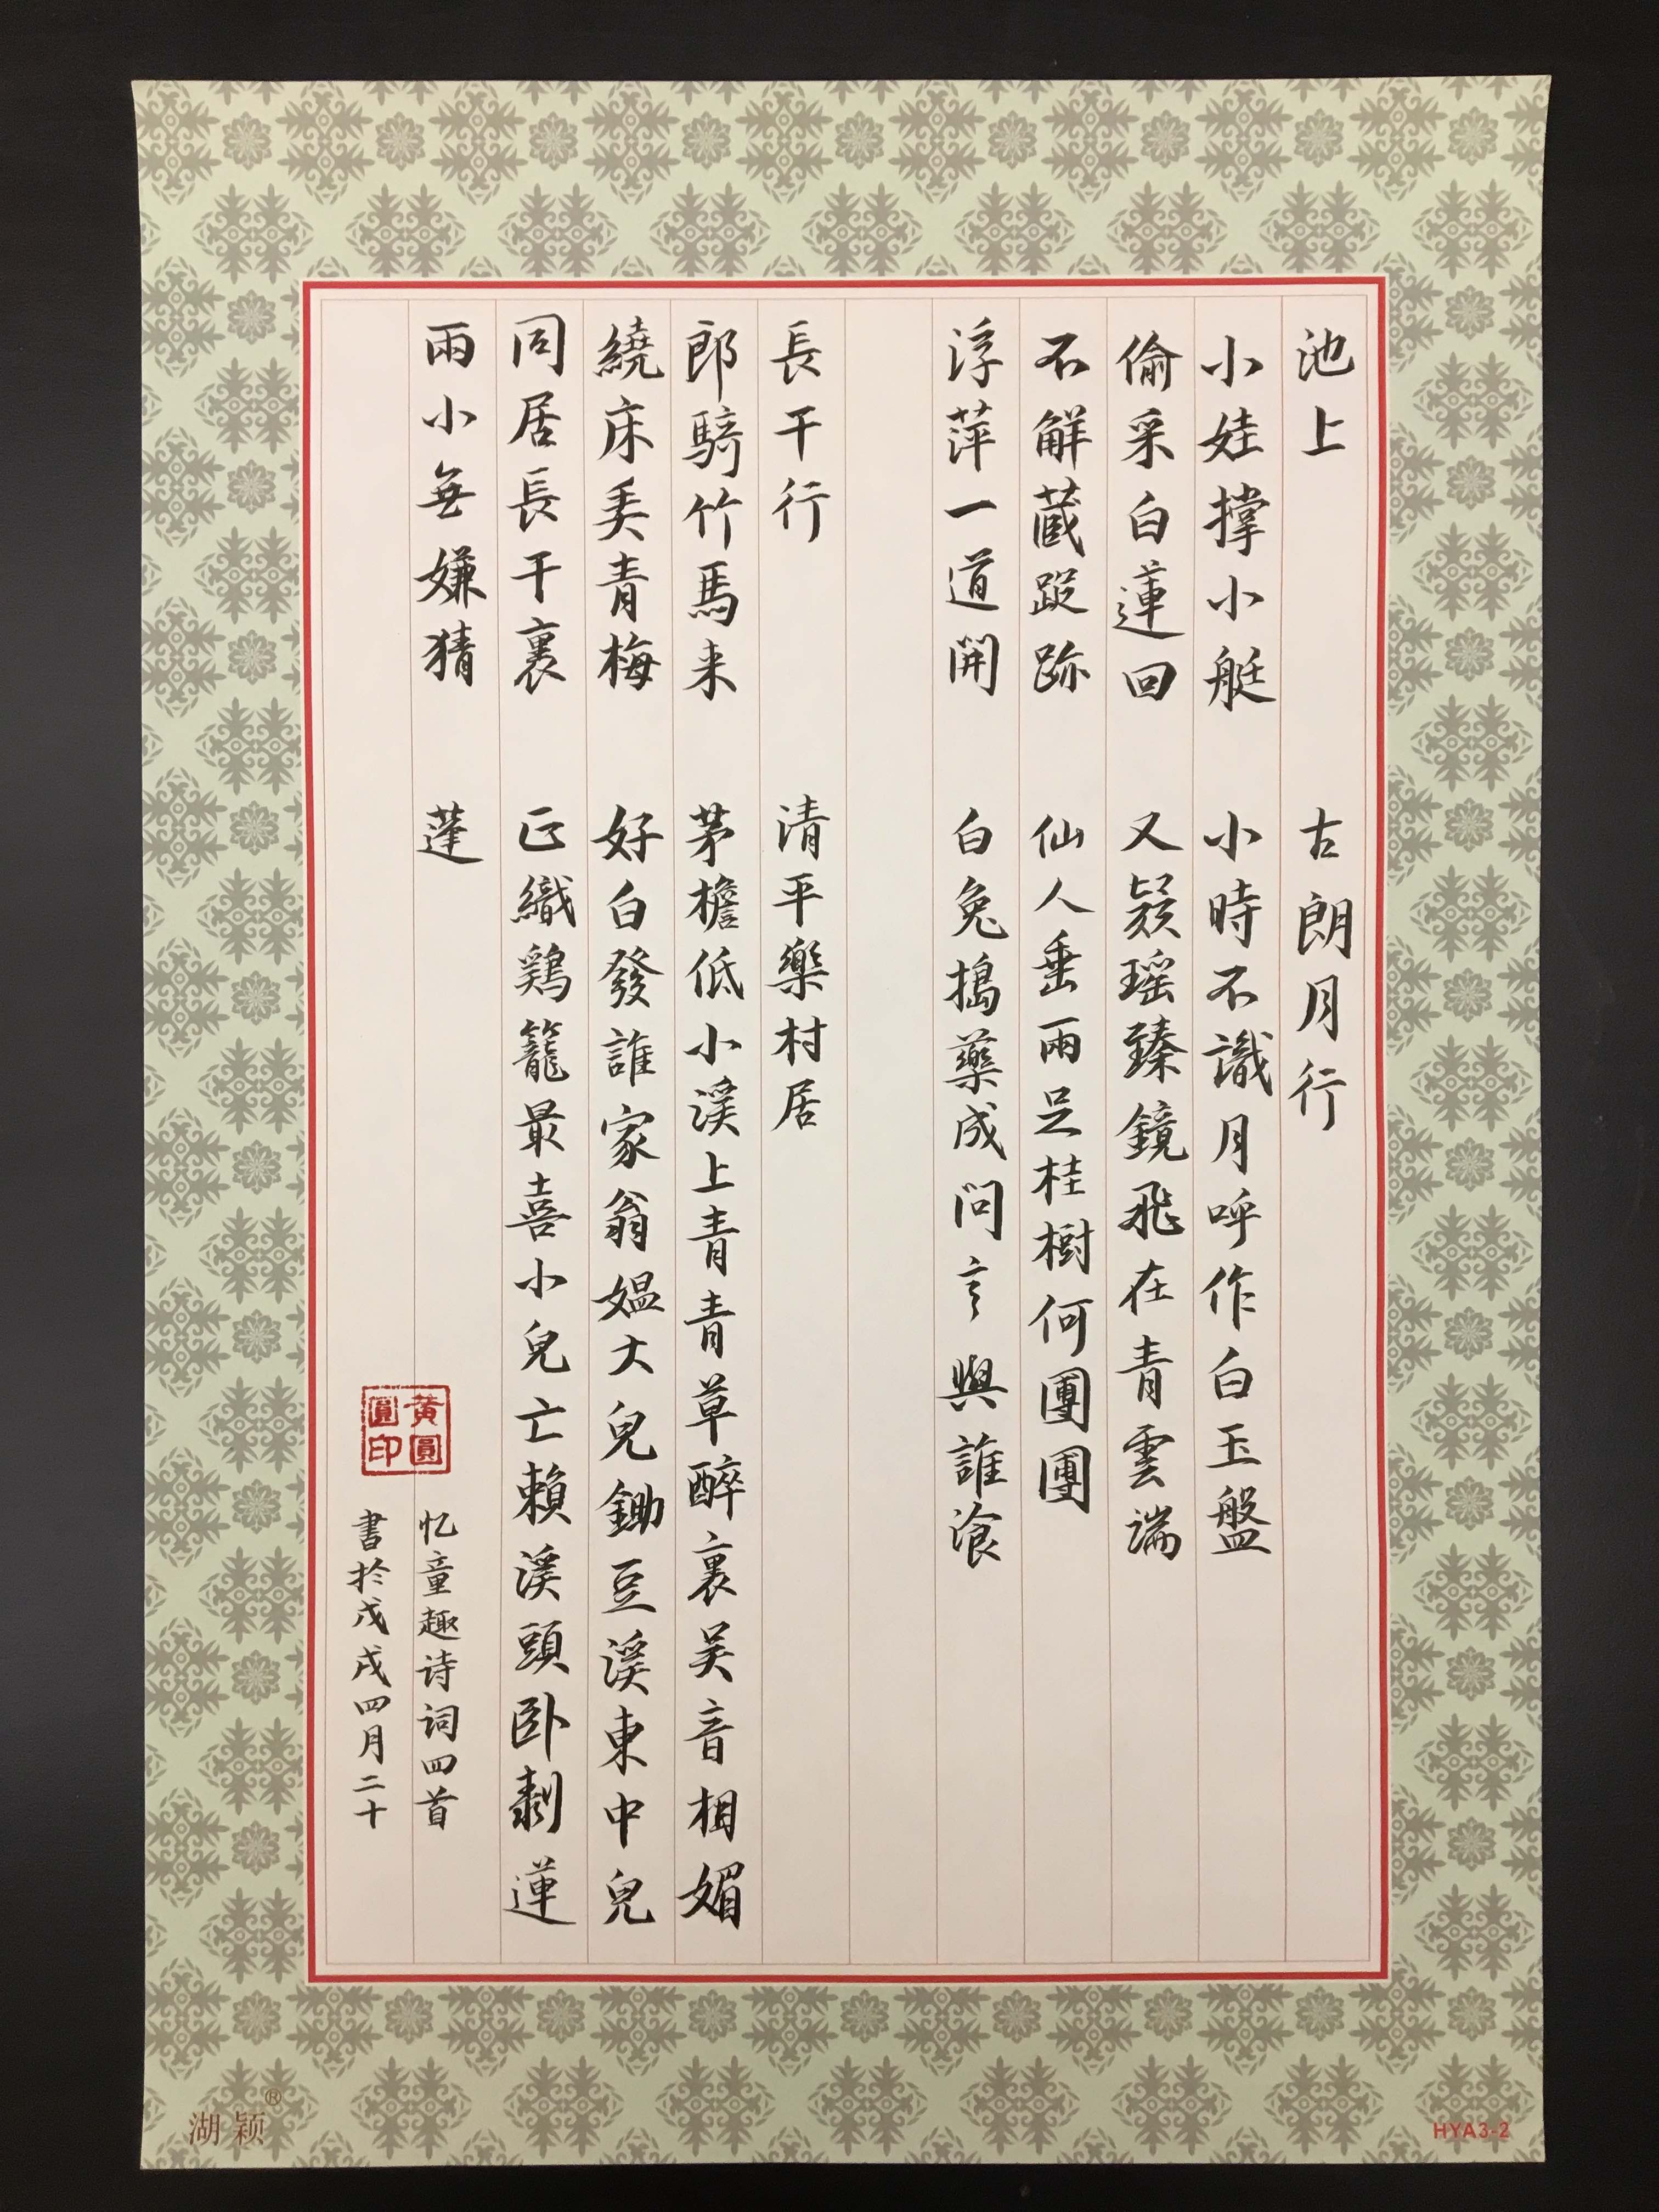 池上
小娃撑小艇
偷采白蓮回
不解蔵蹤跡
浮萍一道開
古朗月行
小時不識月呼作白玉盤
又疑瑶臻鏡飛在青雲端
仙人垂兩足桂樹何團團
白兔搗藥成問言與誰飡
長干行
郎騎竹馬来
繞床弄青梅
同居長干裏
兩小無嫌猜
清平樂村居
茅檐低小溪上青青草醉裏吴音相媚
好白發誰家翁媪大兒鋤豆溪東中兒
正織鷄籠最喜小兒亡賴溪頭卧剥蓮
蓬
忆童趣诗词四首
書於戊戌四月二十
黄圓
圓印
湖颖®
HYA3-2